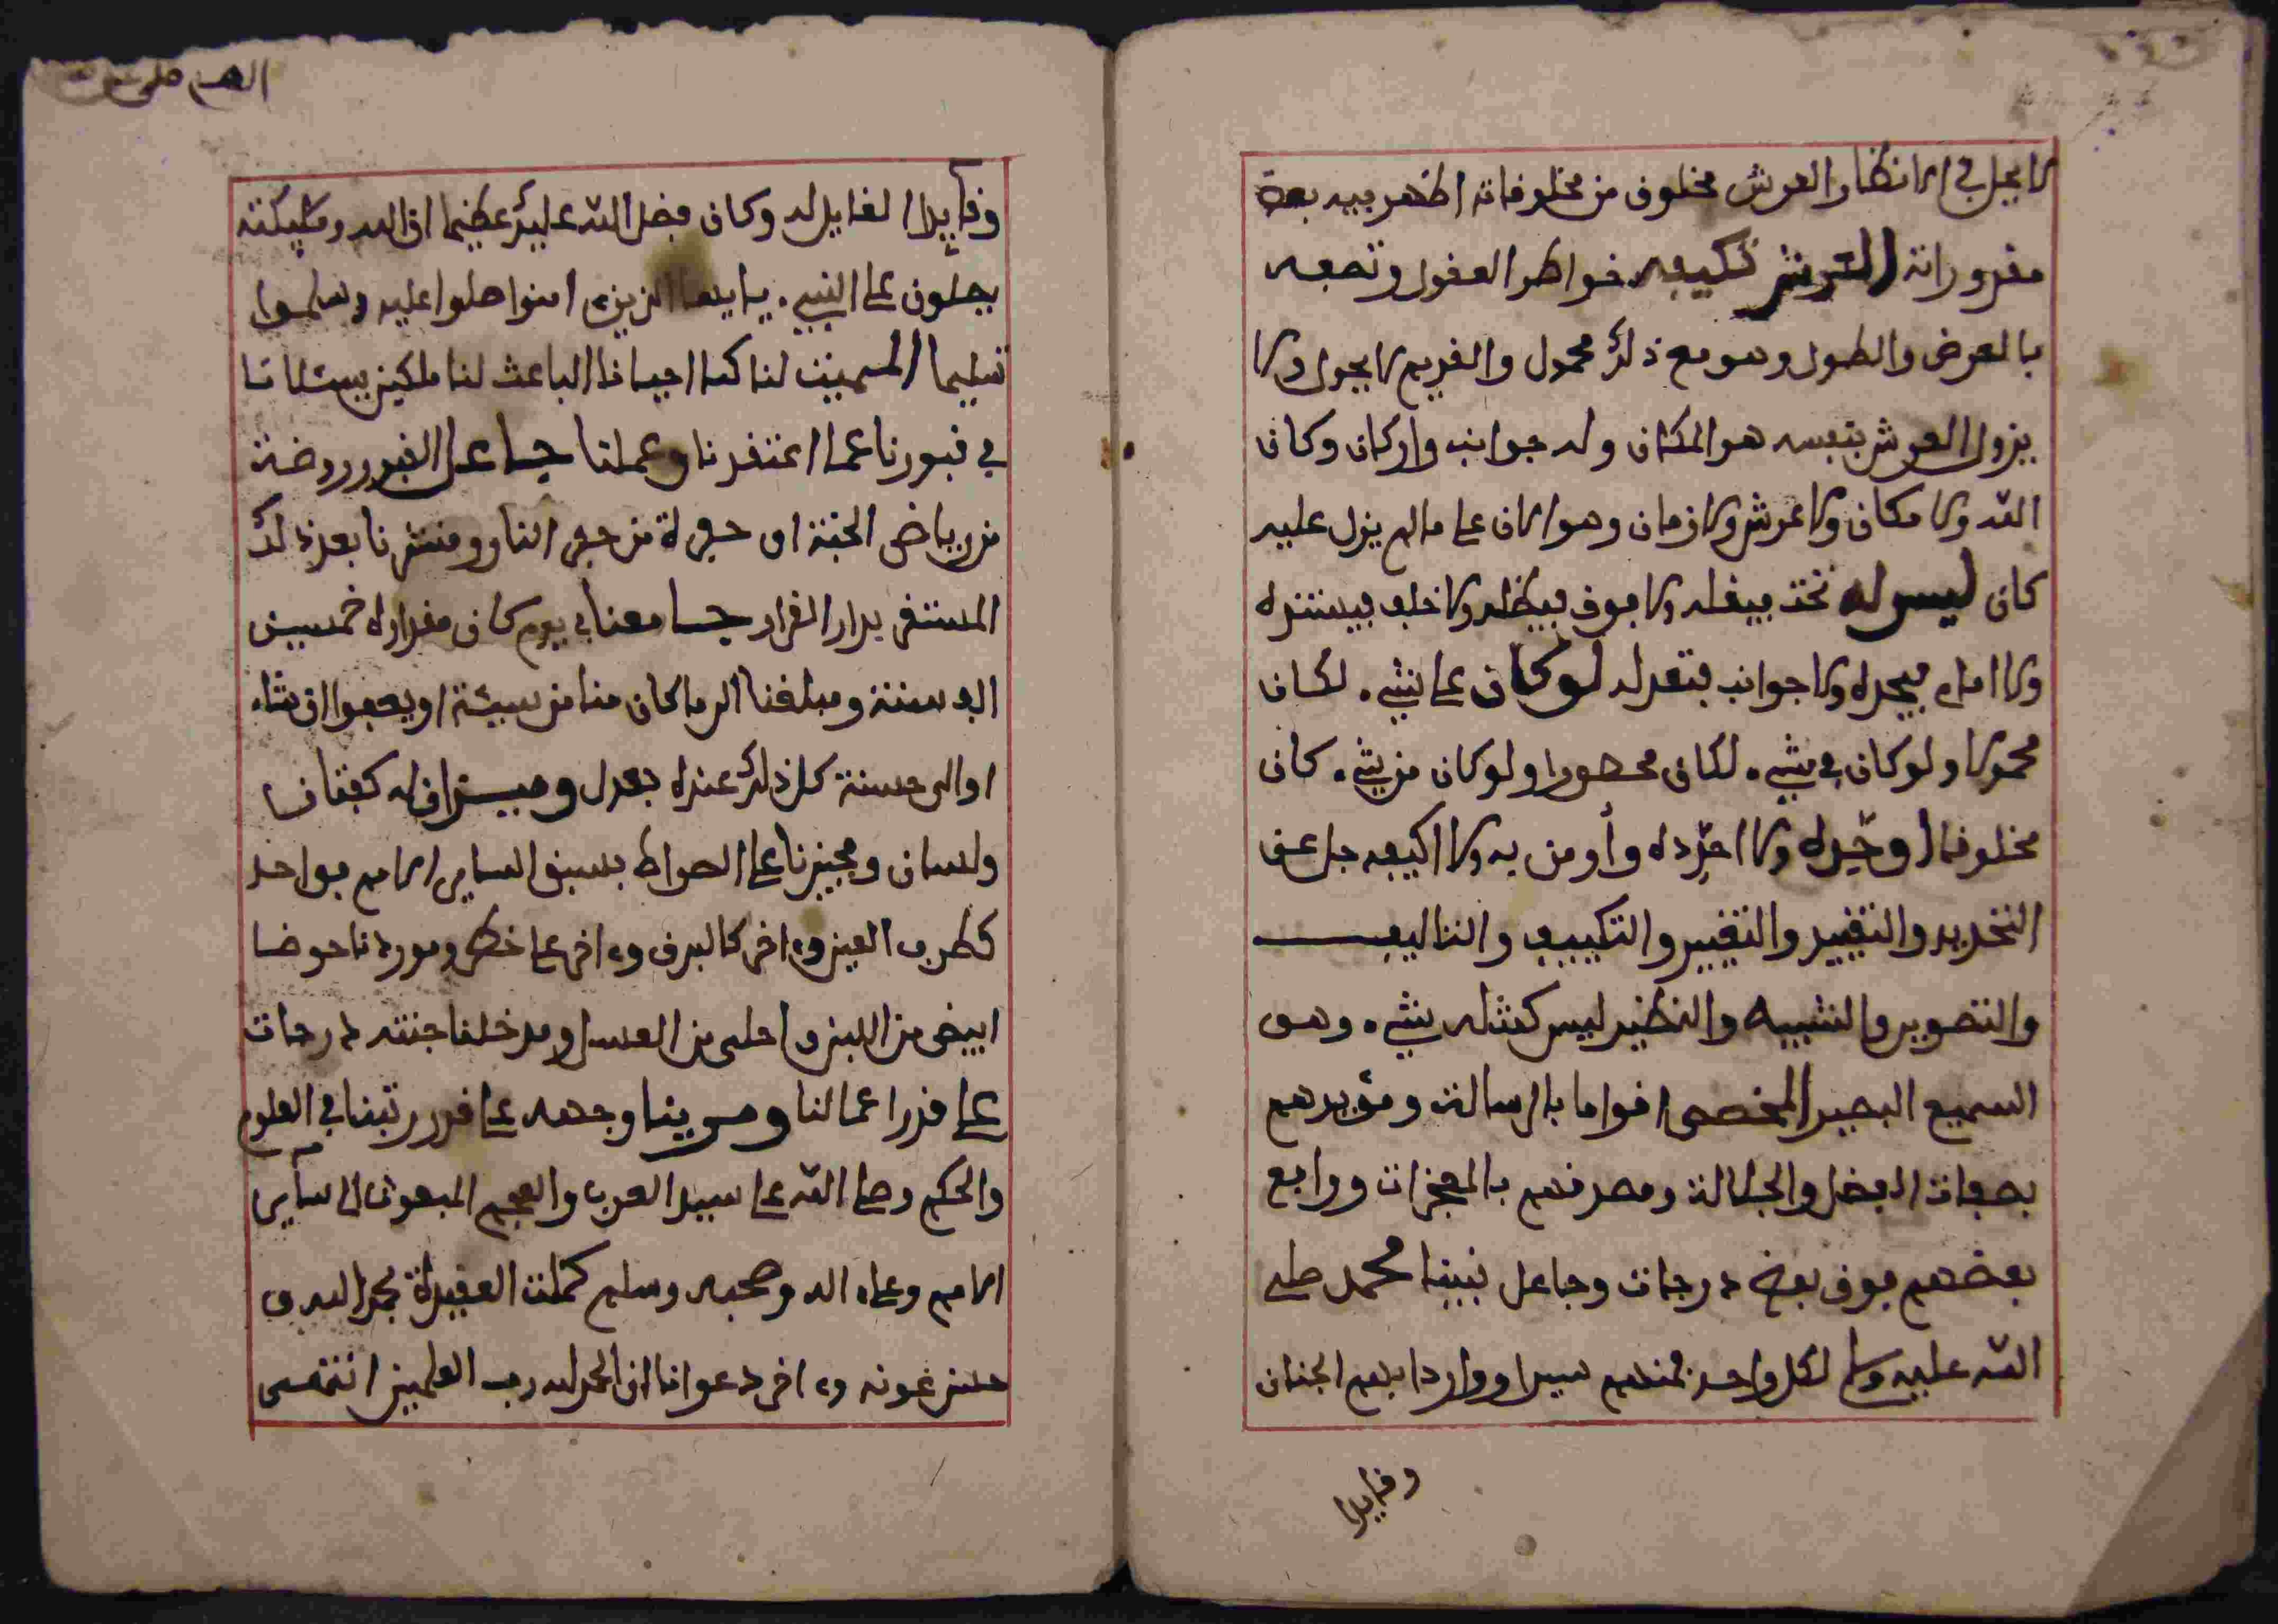 لا يجل في الانظار العرش مخلوق من مخلوقاته اظهر فيه بعض
مقدوراته العرش تكيفه خواطر العقول وتصفه
بالعرض والطول وهو مع ذلك محمول والقديم لا يحول ولا
يزول العرش بنفسه هو المكان وله جوانب واركان وكان
الله ولا مكان ولا عرش ولا زمان وهو الان على ما لم يزل عليه
كان ليس له تحت فيقله ولا فوق فيظله ولا خلف فيسنده
ولا امام فيحده ولا جوانب فتعدله لو كان على شيء لكان
محمولا ولو كان في شيء لكان محصورا ولو كان من شيء كان
مخلوقا اوحّده ولا احدّده واومن به ولا اكيفه جل عن
التحديد والتقييد والتغيير والتكييف والتاليف
والتصوير والتشبيه والنظير ليس كمثله شيء وهو
السميع البصير المخصص اقواما بالرسالة ومؤيدهم
بصفات الفضل والجلالة ومصدقهم بالمعجزات ورافع
بعضهم فوق بعض درجات وجاعل نبينا محمد صلى
الله عليه وسلم لكل واحد منهم سيدا وواردا بهم الجنان
وقايدا
اللهم صلى
وقايدا القايل له وكان فضل الله عليك عظيما ان الله ومليكته
يصلون على النبيء يايها الذين امنوا صلوا عليه وسلموا
تسليما المميت لنا كما احيانا الباعث لنا ملكين يسئلاننا
في قبورنا عما اعتقدنا وعملنا جاعل القبور روضة
من رياض الجنة او حفرة من حفر النار ومنشرنا بعد ذلك
المستقر بدار القرار جامعنا في يوم كان مقداره خمسين
الف سنة ومبلغنا الى ما كان منا من سيئة او يعفوا ان شاء
او الى حسنة كل ذلك عنده بعدل وميزان له كفتان
ولسان ومجيزنا على الصراط بسبق الساير الامم فواحد
كطرف العين واخر كالبرق واخر على خطر وموردنا حوضا
ابيض من اللبن واحلى من العسل ومدخلنا جنته درجات
على قدر اعمالنا ومرينا وجهه على قدر رتبنا في العلوم
والحكم وصلى الله على سيد العرب والعجم المبعوث الى ساير
الامم وعلى اله وصحبه وسلم كملت العقيدة بحمد الله و
حسن عونه واخر دعوانا ان الحمد لله رب العلمين انتهى